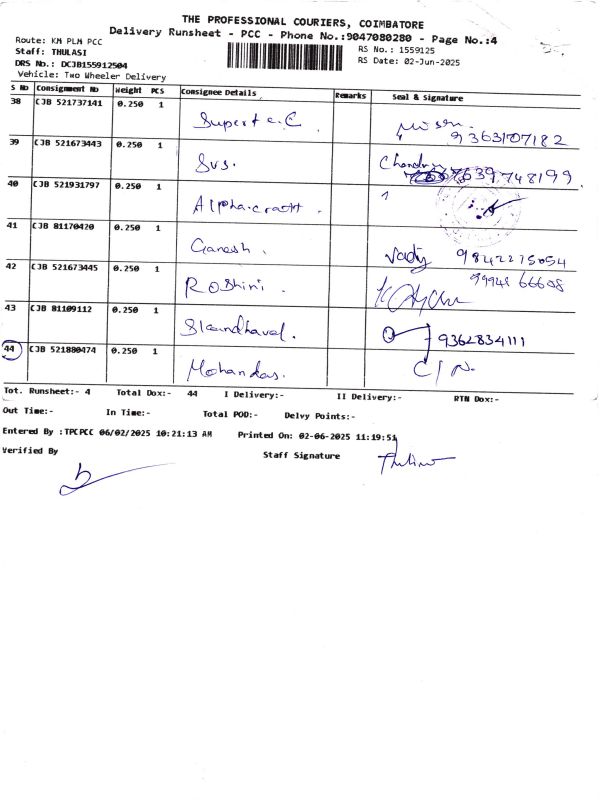 THE PROFESSIONAL COURIERS, COIMBATORE
Delivery Runsheet - PCC - Phone No.:9047080280 - Page No.:4
Route: KM PLM PCC
RS No.: 1559125
Staff: THULASI
RS Date: 02-Jun-2025
DRS No.: DCJB155912504
Vehicle: Two Wheeler Delivery
S No Consignment No Weight PCS Consignee Details Remarks Seal & Signature
38 CJB 521737141 0.250 1
9363107182
39 CJB 521673443 0.250 1 Svs. 7639748199
40 CJB 521931797 0.250 1
41 CJB 81170420 0.250 1 Ganesh. 9842275054
42 CJB 521673445 0.250 1 Roshini. 9994866608
43 CJB 81109112 0.250 1 9362834111
44 CJB 521880474 0.250 1 Mohandas.
Tot. Runsheet:- 4 Total Dox:- 44 I Delivery:- II Delivery:- RTN Dox:-
Out Time:- In Time:- Total POD:- Delvy Points:-
Entered By :TPCPCC 06/02/2025 10:21:13 AM Printed On: 02-06-2025 11:19:51
Verified By Staff Signature